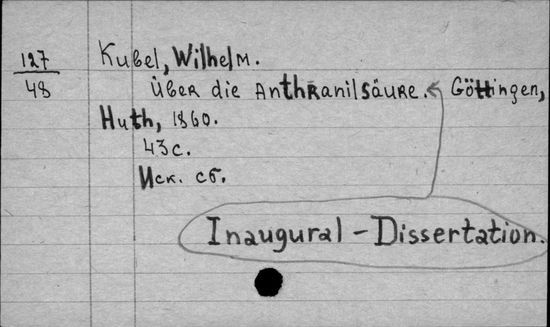 127
48
Kubel, Wilhelm.
Über die Anthranilsäure. Göttingen,
Huth, 1860.
43 с.
Иск. сб.
Inaugural - Dissertation.